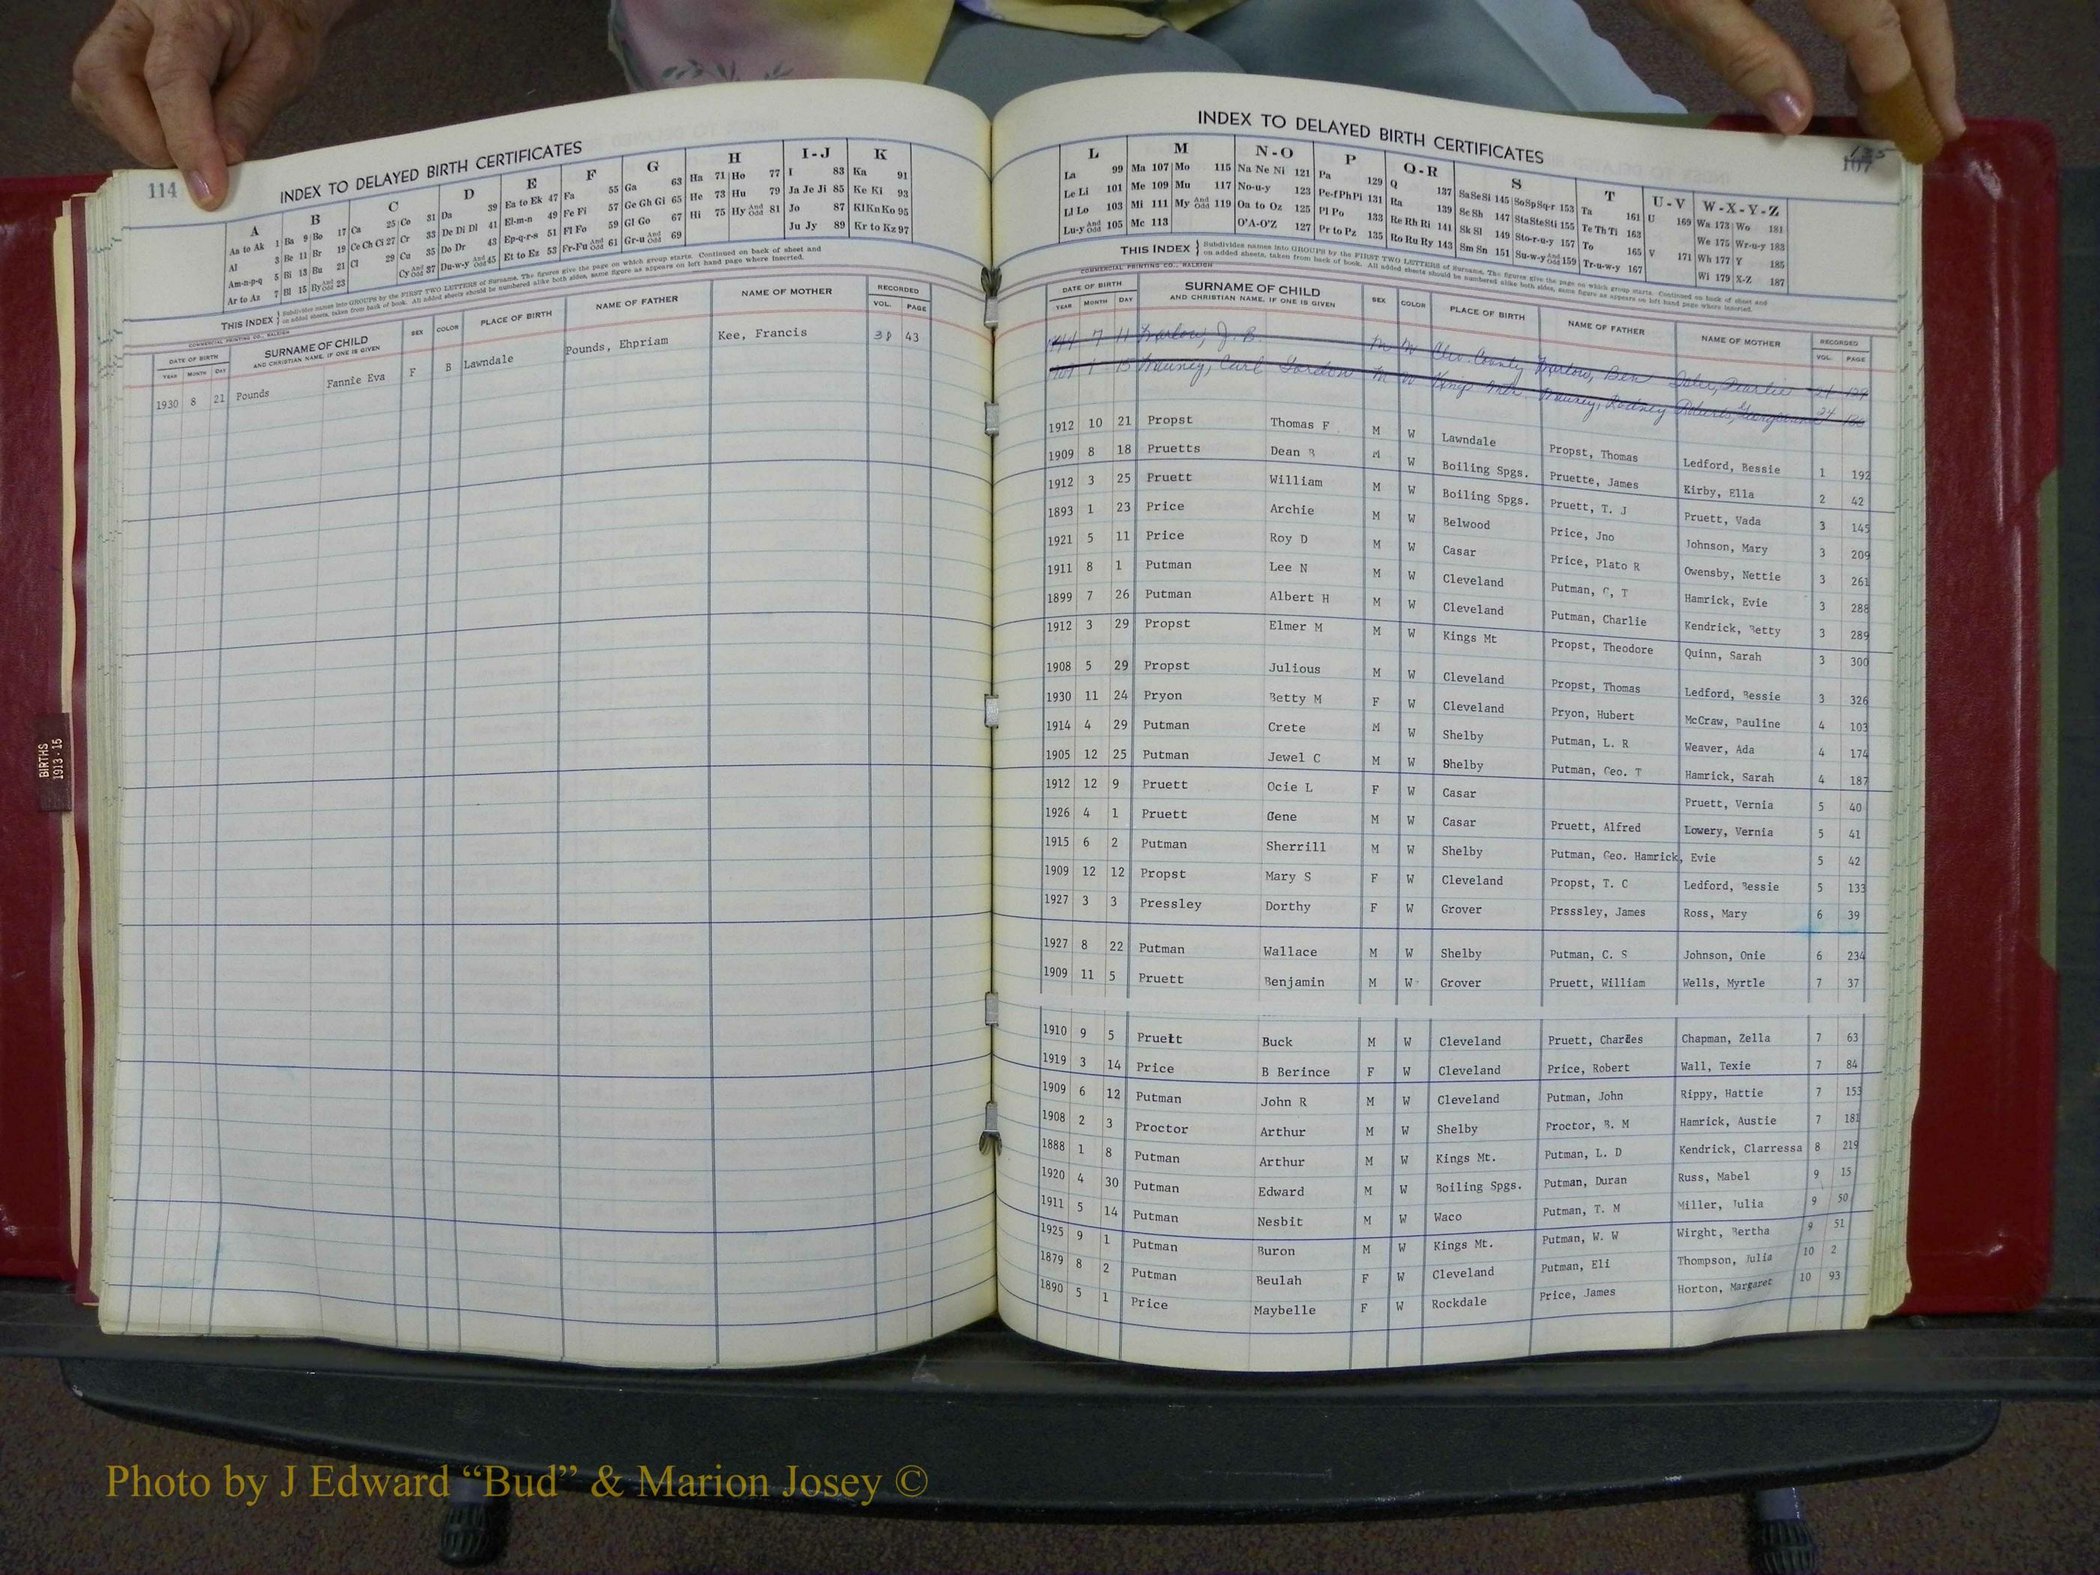 114
INDEX TO DELAYED BIRTH CERTIFICATES
A B C D E F G H I-J K
Aa to Ak 1 Ba 9 Bo 17 Ca 25 Co 31 Da 39 Ea to Ek 47 Fa 55 Ga 63 Ha 71 Ho 77 I 83 Ka 91
Al 3 Be 11 Br 19 Ce Ch Cl 27 Cr 33 De Di Dl 41 El-m-n 49 Fe Fi 57 Ge Gh Gi 65 He 73 Hu 79 Ja Je Ji 85 Ke Ki 93
Am-n-p-q 5 Bi 13 Bu 21 Cl 29 Cu 35 Do Dr 43 Ep-q-r-s 51 Fl Fo 59 Gl Go 67 Hi 75 Hy And Odd 81 Jo 87 Kl Kn Ko 95
Ar to Az 7 Bl 15 By And Odd 23 Cy And Odd 37 Du-w-y And Odd 45 Et to Ez 53 Fr-Fu And Odd 61 Gr-u And Odd 69 Ju Jy 89 Kr to Kz 97
THIS INDEX Subdivides names into GROUPS by the FIRST TWO LETTERS of Surname. The figures give the page on which group starts. Continued on back of sheet and
on added sheets, taken from back of book. All added sheets should be numbered alike both sides, same figure as appears on left hand page where inserted.
COMMERCIAL PRINTING CO., RALEIGH
DATE OF BIRTH SURNAME OF CHILD SEX COLOR PLACE OF BIRTH NAME OF FATHER NAME OF MOTHER RECORDED
YEAR MONTH DAY AND CHRISTIAN NAME, IF ONE IS GIVEN VOL. PAGE
1930 8 21 Pounds Fannie Eva F B Lawndale Pounds, Ehpriam Kee, Francis 38 43
BIRTHS
1913-15
135
107
INDEX TO DELAYED BIRTH CERTIFICATES
L M N-O P Q-R S T U-V W-X-Y-Z
La 99 Ma 107 Mo 115 Na Ne Ni 121 Pa 129 Q 137 Sa Se Si 145 So Sp Sq-r 153 Ta 161 U 169 Wa 173 Wo 181
Le Li 101 Me 109 Mu 117 No-u-y 123 Pe-f Ph Pi 131 Ra 139 Sc Sh 147 Sta Ste Sti 155 Te Th Ti 163 We 175 Wr-u-y 183
Ll Lo 103 Mi 111 My And Odd 119 Oa to Oz 125 Pl Po 133 Re Rh Ri 141 Sk Sl 149 Sto-r-u-y 157 To 165 V 171 Wh 177 Y 185
Lu-y And Odd 105 Mc 113 O'A-O'Z 127 Pr to Pz 135 Ro Ru Ry 143 Sm Sn 151 Su-w-y And Odd 159 Tr-u-w-y 167 Wi 179 X-Z 187
THIS INDEX Subdivides names into GROUPS by the FIRST TWO LETTERS of Surname. The figures give the page on which group starts. Continued on back of sheet and
on added sheets, taken from back of book. All added sheets should be numbered alike both sides, same figure as appears on left hand page where inserted.
COMMERCIAL PRINTING CO., RALEIGH
DATE OF BIRTH SURNAME OF CHILD SEX COLOR PLACE OF BIRTH NAME OF FATHER NAME OF MOTHER RECORDED
YEAR MONTH DAY AND CHRISTIAN NAME, IF ONE IS GIVEN VOL. PAGE
7 11 J. B. M W Clev. County Ben
1 15 Mauney, Carl Gordon M W Kings Mtn. Mauney, Rodney 24
1912 10 21 Propst Thomas F M W Lawndale Propst, Thomas Ledford, Bessie 1 192
1909 8 18 Pruetts Dean B M W Boiling Spgs. Pruette, James Kirby, Ella 2 42
1912 3 25 Pruett William M W Boiling Spgs. Pruett, T. J Pruett, Vada 3 145
1893 1 23 Price Archie M W Belwood Price, Jno Johnson, Mary 3 209
1921 5 11 Price Roy D M W Casar Price, Plato R Owensby, Nettie 3 261
1911 8 1 Putman Lee N M W Cleveland Putman, C, T Hamrick, Evie 3 288
1899 7 26 Putman Albert H M W Cleveland Putman, Charlie Kendrick, Betty 3 289
1912 3 29 Propst Elmer M M W Kings Mt Propst, Theodore Quinn, Sarah 3 300
1908 5 29 Propst Julious M W Cleveland Propst, Thomas Ledford, Bessie 3 326
1930 11 24 Pryon Betty M F W Cleveland Pryon, Hubert McCraw, Pauline 4 103
1914 4 29 Putman Crete M W Shelby Putman, L. R Weaver, Ada 4 174
1905 12 25 Putman Jewel C M W Shelby Putman, Geo. T Hamrick, Sarah 4 187
1912 12 9 Pruett Ocie L F W Casar Pruett, Vernia 5 40
1926 4 1 Pruett Gene M W Casar Pruett, Alfred Lowery, Vernia 5 41
1915 6 2 Putman Sherrill M W Shelby Putman, Geo. Hamrick, Evie 5 42
1909 12 12 Propst Mary S F W Cleveland Propst, T. C Ledford, Bessie 5 133
1927 3 3 Pressley Dorthy F W Grover Prsssley, James Ross, Mary 6 39
1927 8 22 Putman Wallace M W Shelby Putman, C. S Johnson, Onie 6 234
1909 11 5 Pruett Benjamin M W Grover Pruett, William Wells, Myrtle 7 37
1910 9 5 Pruett Buck M W Cleveland Pruett, Charles Chapman, Zella 7 63
1919 3 14 Price B Berince F W Cleveland Price, Robert Wall, Texie 7 84
1909 6 12 Putman John R M W Cleveland Putman, John Rippy, Hattie 7 153
1908 2 3 Proctor Arthur M W Shelby Proctor, B. M Hamrick, Austie 7 181
1888 1 8 Putman Arthur M W Kings Mt. Putman, L. D Kendrick, Clarressa 8 219
1920 4 30 Putman Edward M W Boiling Spgs. Putman, Duran Russ, Mabel 9 15
1911 5 14 Putman Nesbit M W Waco Putman, T. M Miller, Julia 9 50
1925 9 1 Putman Buron M W Kings Mt. Putman, W. W Wirght, Bertha 9 51
1879 8 2 Putman Beulah F W Cleveland Putman, Eli Thompson, Julia 10 2
1890 5 1 Price Maybelle F W Rockdale Price, James Horton, Margaret 10 93
Photo by J Edward “Bud” & Marion Josey ©